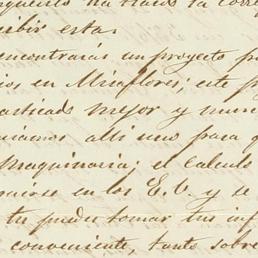 ha traido la corre
cibir esta.
encontrarás un proyecto pa
ios en Miraflores; este p
mejor y
alli uno para
Maquinaria; el calculo
en los E.U. y de
tu puedes tomar tus inf
conveniente, tanto sobre